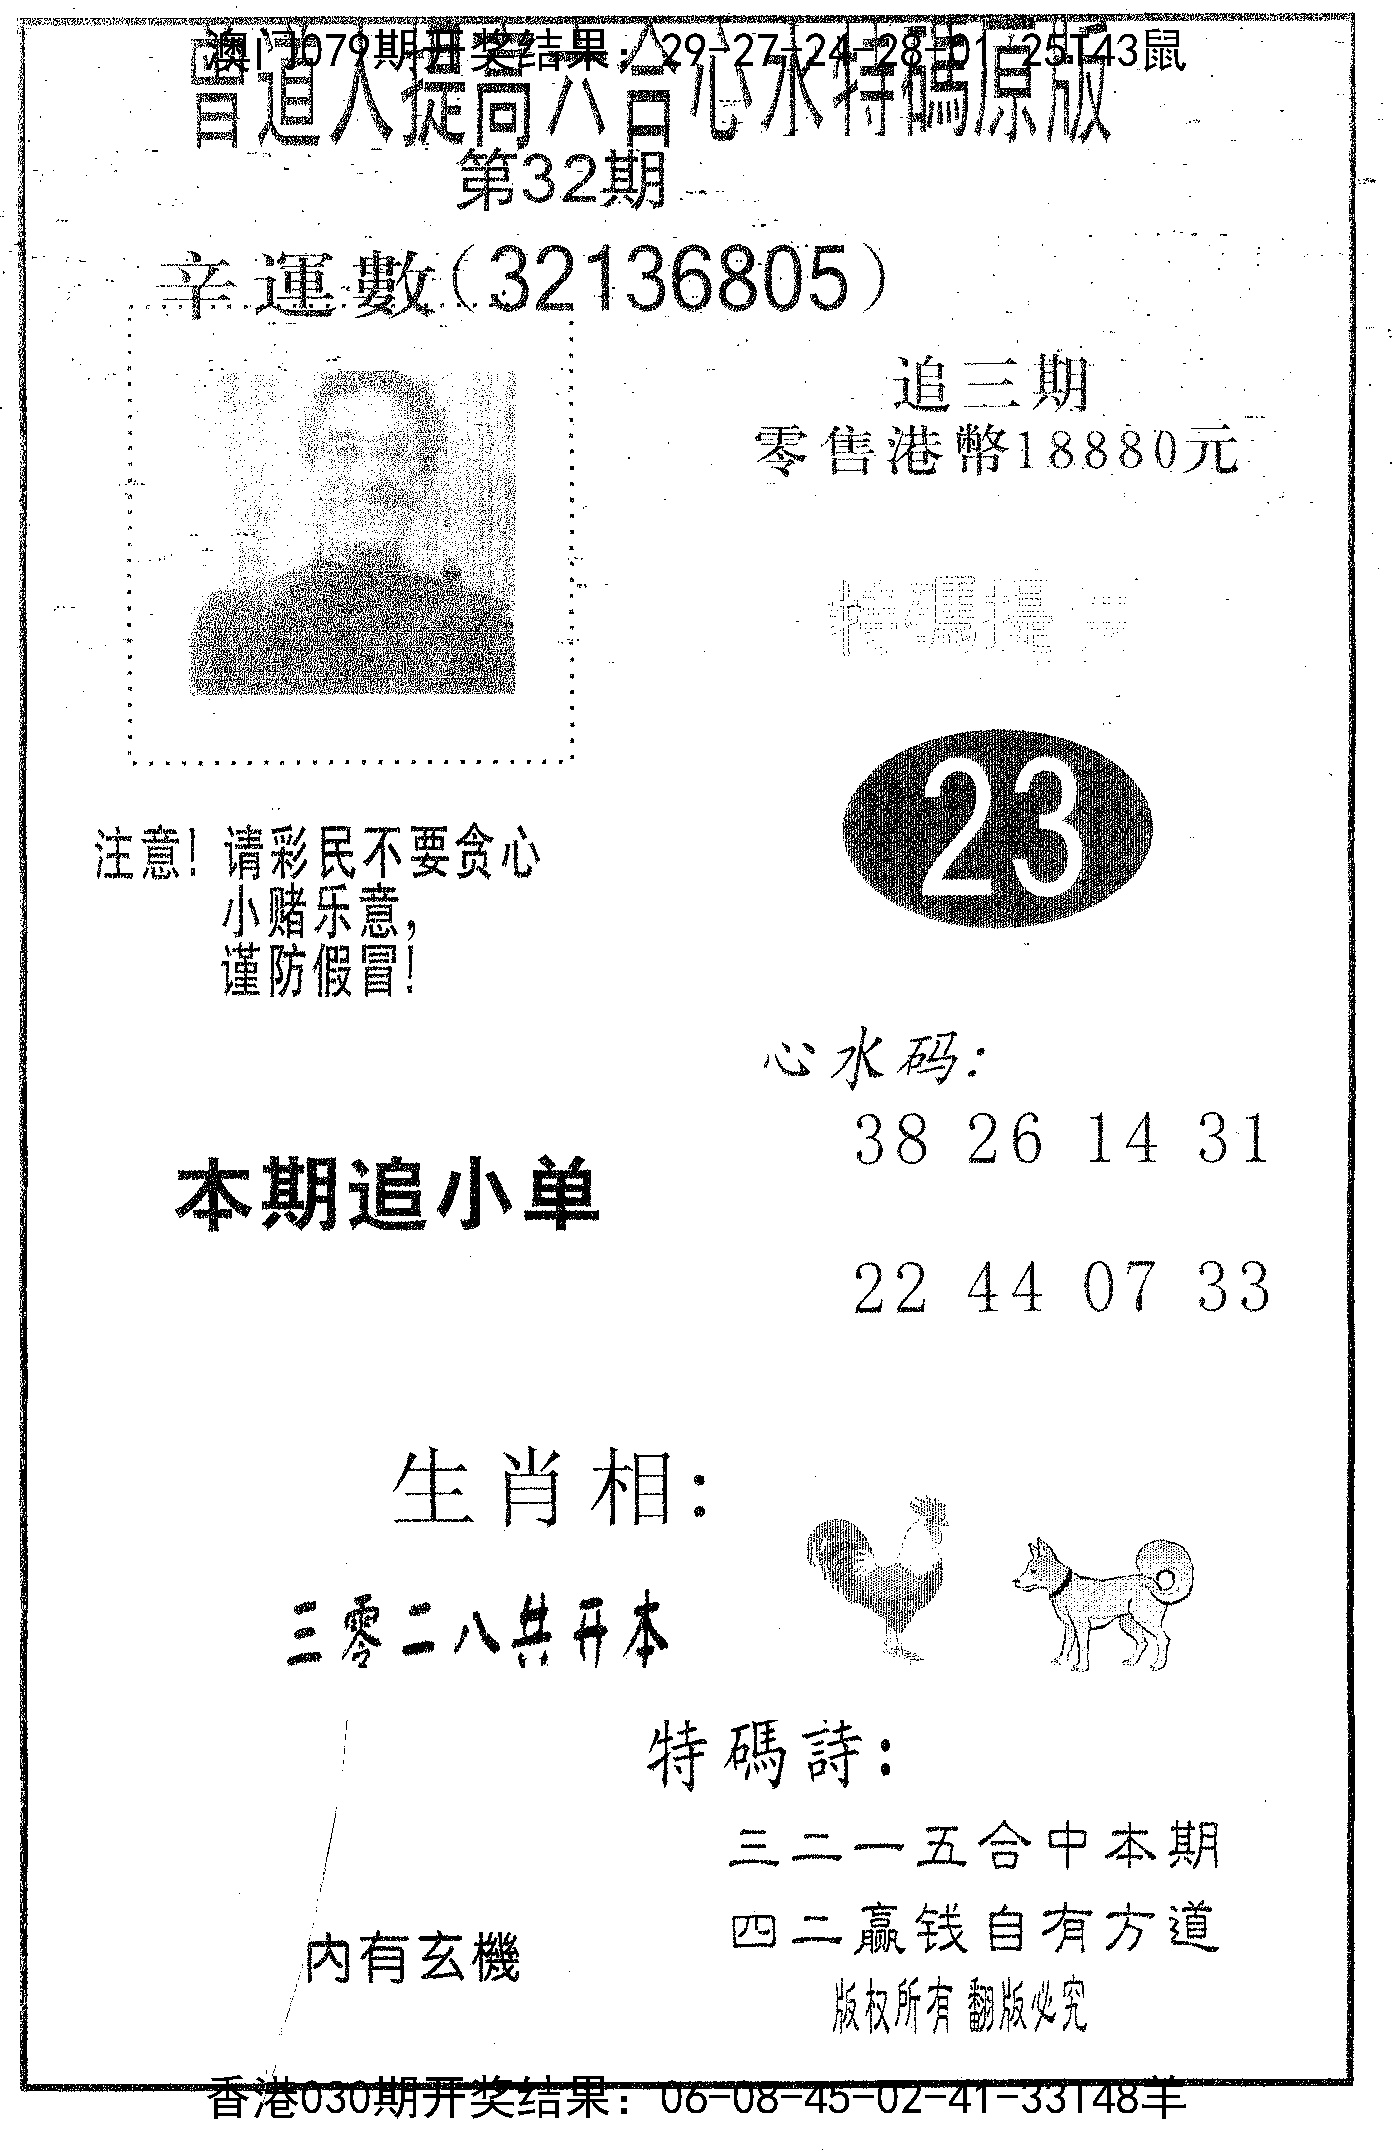 澳门079期开奖结果：29-27-24-28-01-25T43鼠
曾道人提高六合心水特碼原版
第32期
辛運數(32136805)
追三期
零售港幣18880元
特碼提
23
注意！请彩民不要贪心
小赌乐意，
谨防假冒！
心水码：
38 26 14 31
本期追小单
22 44 07 33
生肖相：
三零二八共开本
特碼詩：
三二一五合中本期
四二赢钱自有方道
内有玄機
版权所有 翻版必究
香港030期开奖结果：06-08-45-02-41-33T48羊